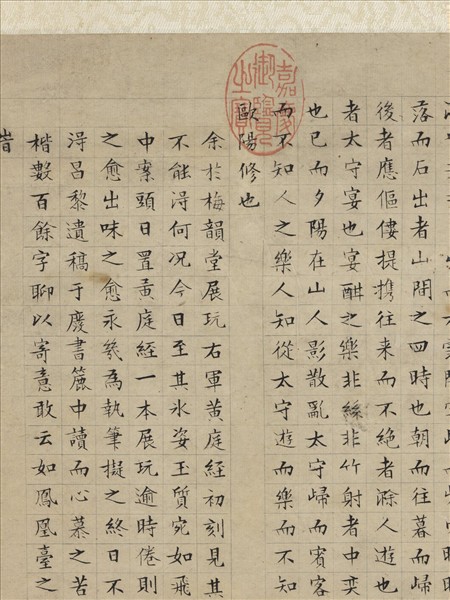 落而石出者山間之四時也朝而往暮而歸
後者應傴僂提携往来而不絶者滁人遊也
者太守宴也宴酣之樂非絲非竹射者中奕
也已而夕陽在山人影散亂太守歸而賓客
而不知人之樂人知從太守遊而樂而不知
歐陽修也
嘉慶御覽之寶
余於梅韻堂展玩右軍黄庭經初刻見其
不能淂何况今日至其氷姿玉質宛如飛
中案頭日置黄庭經一本展玩逾時倦則
之愈出味之愈永㡬為執筆擬之終日不
淂昌黎遺稿于慶書簏中讀而心慕之苦
楷數百餘字聊以寄意敢云如鳳凰臺之